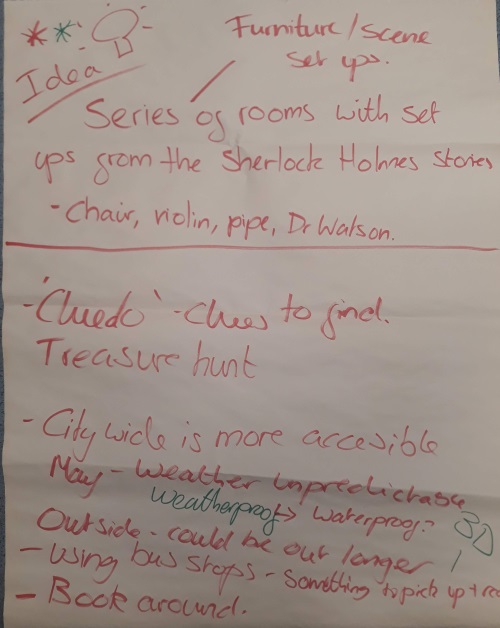 Furniture/scene
set ups.
Idea
Series of rooms with set
ups from the Sherlock Holmes stories
- Chair, violin, pipe, Dr Watson.
- 'Cluedo' - Clues to find.
Treasure hunt
- City wide is more accesible
May - Weather unpredictable
Weatherproof → Waterproof? 3D
Outside - could be out longer
- Using bus stops - Something to pick up +
- Book around.